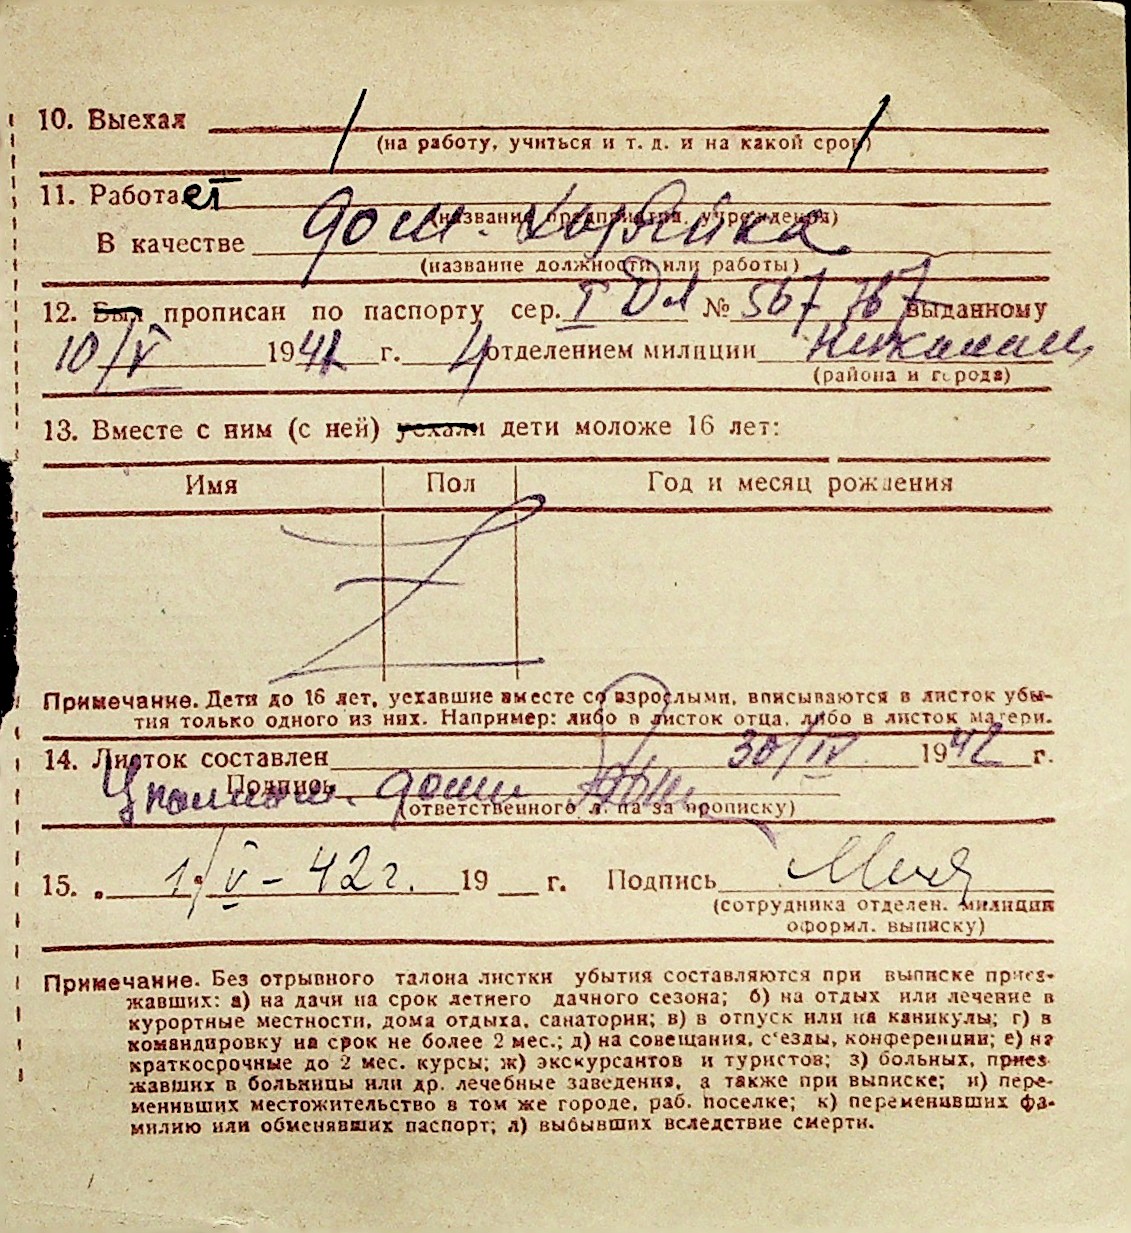 10. Выехал
(на работу, учиться и т. д. и на какой срок)
11. Работает
(название предприятия, учреждения)
В качестве дом. хозяйка
(название должности или работы)
12. Был прописан по паспорту сер. № 567767 выданному
10/V 1942 г. 4 отделением милиции
(района и города)
13. Вместе с ним (с ней) уехали дети моложе 16 лет:
Имя Пол Год и месяц рождения
Z
Примечание. Дети до 16 лет, уехавшие вместе со взрослыми, вписываются в листок убы-
тия только одного из них. Например: либо в листок отца, либо в листок матери.
14. Листок составлен 30/IV 1942 г.
Подпись
(ответственного лица за прописку)
15. „ 1/V – 42 г. 19 г. Подпись
(сотрудника отделен. милиции
оформл. выписку)
Примечание. Без отрывного талона листки убытия составляются при выписке приез-
жавших: а) на дачи на срок летнего дачного сезона; б) на отдых или лечение в
курортные местности, дома отдыха, санатории; в) в отпуск или на каникулы; г) в
командировку на срок не более 2 мес.; д) на совещания, с'езды, конференции; е) на
краткосрочные до 2 мес. курсы; ж) экскурсантов и туристов; з) больных, приез
жавших в больницы или др. лечебные заведения, а также при выписке; и) пере-
менивших местожительство в том же городе, раб. поселке; к) переменивших фа-
милию или обменявших паспорт; л) выбывших вследствие смерти.